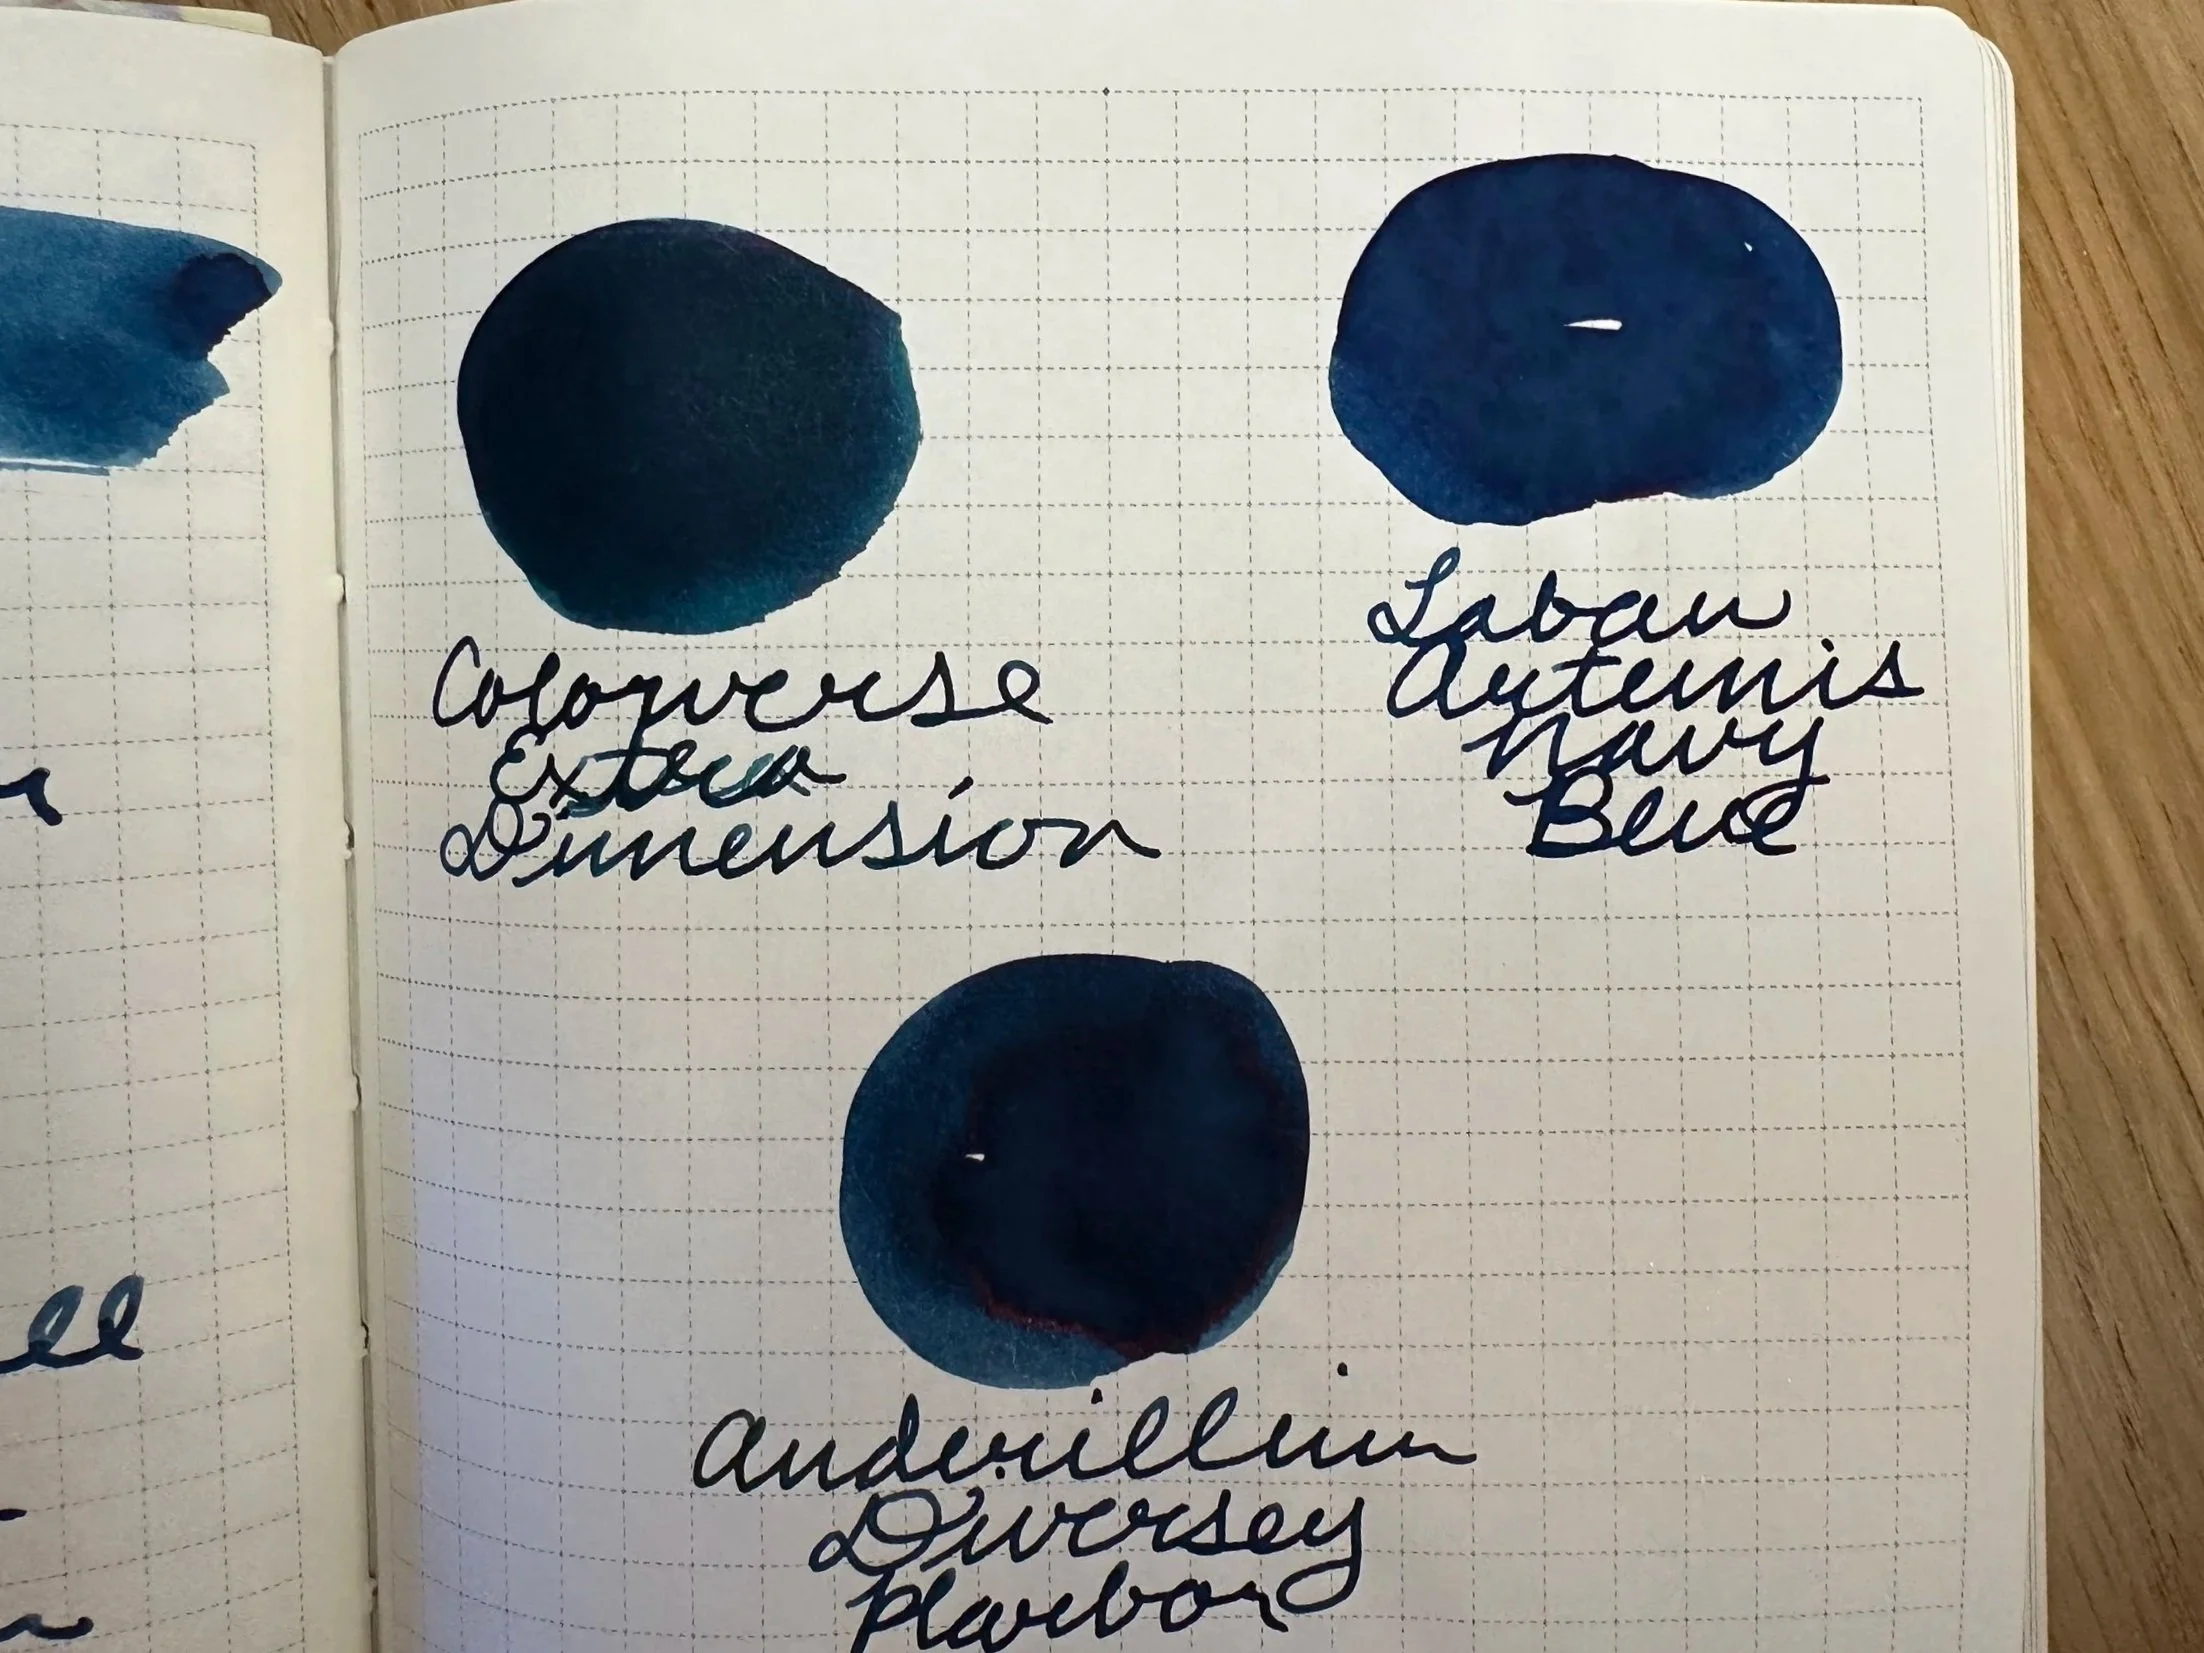 Colorverse
Extra
Dimension
Laban
Artemis
Navy
Blue
Anderillium
Diversey
Harbor
ll